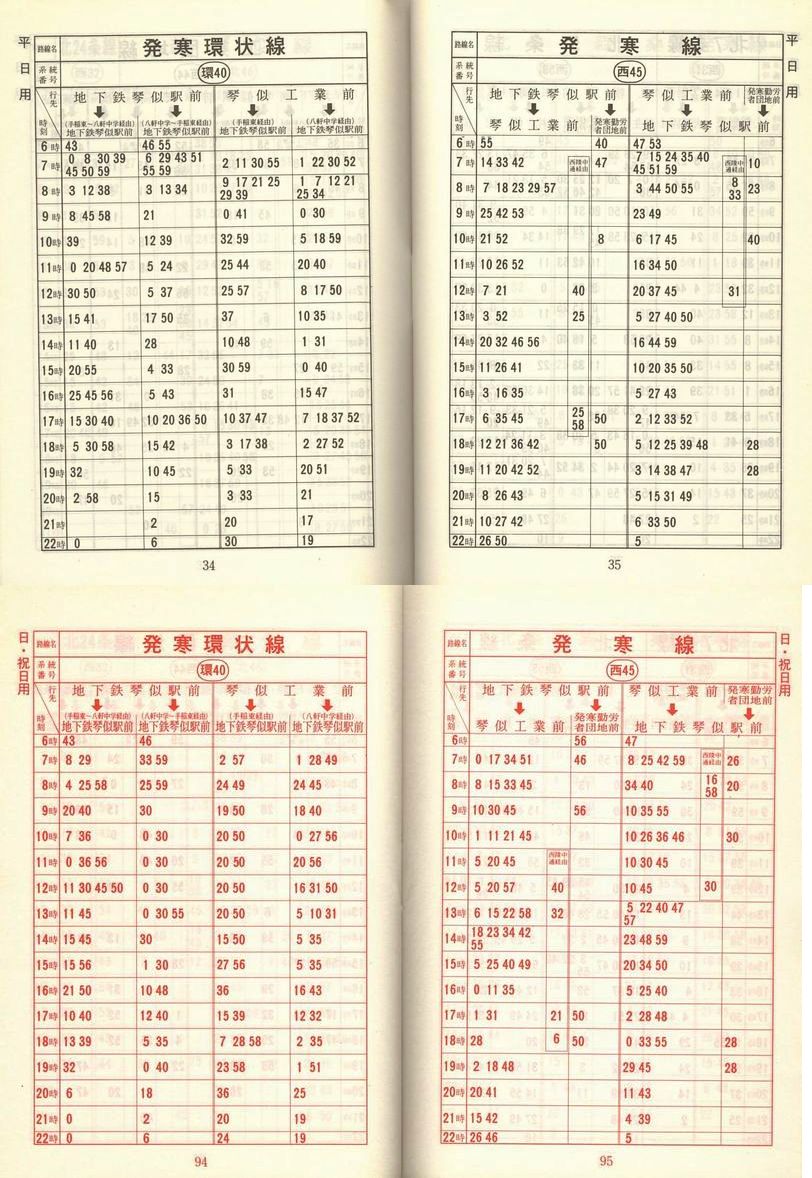 平日用
路線名 発寒環状線
系統番号 環40
行先 時刻
地下鉄琴似駅前 琴似工業前
(手稲東～八軒中学経由) 地下鉄琴似駅前
(八軒中学～手稲東経由) 地下鉄琴似駅前
(手稲東経由) 地下鉄琴似駅前
(八軒中学経由) 地下鉄琴似駅前
6時 43 | 46 55
7時 0 8 30 39 45 50 59 | 6 29 43 51 55 59 | 2 11 30 55 | 1 22 30 52
8時 3 12 38 | 3 13 34 | 9 17 21 25 29 39 | 1 7 12 21 25 34
9時 8 45 58 | 21 | 0 41 | 0 30
10時 39 | 12 39 | 32 59 | 5 18 59
11時 0 20 48 57 | 5 24 | 25 44 | 20 40
12時 30 50 | 5 37 | 25 57 | 8 17 50
13時 15 41 | 17 50 | 37 | 10 35
14時 11 40 | 28 | 10 48 | 1 31
15時 20 55 | 4 33 | 30 59 | 0 40
16時 25 45 56 | 5 43 | 31 | 15 47
17時 15 30 40 | 10 20 36 50 | 10 37 47 | 7 18 37 52
18時 5 30 58 | 15 42 | 3 17 38 | 2 27 52
19時 32 | 10 45 | 5 33 | 20 51
20時 2 58 | 15 | 3 33 | 21
21時 | 2 | 20 | 17
22時 0 | 6 | 30 | 19
34
平日用
路線名 発寒線
系統番号 西45
行先 時刻
地下鉄琴似駅前 琴似工業前 発寒勤労者団地前
琴似工業前 発寒勤労者団地前 地下鉄琴似駅前
6時 55 | 40 | 47 53
7時 14 33 42 | 西陵中通経由 | 47 | 7 15 24 35 40 45 51 59 | 西陵中通経由 | 10
8時 7 18 23 29 57 | 3 44 50 55 | 8 33 | 23
9時 25 42 53 | 23 49
10時 21 52 | 8 | 6 17 45 | 40
11時 10 26 52 | 16 34 50
12時 7 21 | 40 | 20 37 45 | 31
13時 3 52 | 25 | 5 27 40 50
14時 20 32 46 56 | 16 44 59
15時 11 26 41 | 10 20 35 50
16時 3 16 35 | 5 27 43
17時 6 35 45 | 25 58 | 50 | 2 12 33 52
18時 12 21 36 42 | 50 | 5 12 25 39 48 | 28
19時 11 20 42 52 | 3 14 38 47 | 28
20時 8 26 43 | 5 15 31 49
21時 10 27 42 | 6 33 50
22時 26 50 | 5
35
日・祝日用
路線名 発寒環状線
系統番号 環40
行先 時刻
地下鉄琴似駅前 琴似工業前
(手稲東～八軒中学経由) 地下鉄琴似駅前
(八軒中学～手稲東経由) 地下鉄琴似駅前
(手稲東経由) 地下鉄琴似駅前
(八軒中学経由) 地下鉄琴似駅前
6時 43 | 46
7時 8 29 | 33 59 | 2 57 | 1 28 49
8時 4 25 58 | 25 59 | 24 49 | 24 45
9時 20 40 | 30 | 19 50 | 18 40
10時 7 36 | 0 30 | 20 50 | 0 27 56
11時 0 36 56 | 0 30 | 20 50 | 20 56
12時 11 30 45 50 | 0 30 | 20 50 | 16 31 50
13時 11 45 | 0 30 55 | 20 50 | 5 10 31
14時 15 45 | 30 | 15 50 | 5 35
15時 15 56 | 1 30 | 27 56 | 5 35
16時 21 50 | 10 48 | 36 | 16 43
17時 10 40 | 12 40 | 15 39 | 12 32
18時 13 39 | 5 35 | 7 28 58 | 2 35
19時 32 | 0 40 | 23 58 | 1 51
20時 6 | 18 | 36 | 25
21時 0 | 2 | 20 | 19
22時 0 | 6 | 24 | 19
94
日・祝日用
路線名 発寒線
系統番号 西45
行先 時刻
地下鉄琴似駅前 琴似工業前 発寒勤労者団地前
琴似工業前 発寒勤労者団地前 地下鉄琴似駅前
6時 | 56 | 47
7時 0 17 34 51 | 46 | 8 25 42 59 | 西陵中通経由 | 26
8時 8 15 33 45 | 34 40 | 16 58 | 20
9時 10 30 45 | 56 | 10 35 55
10時 1 11 21 45 | 10 26 36 46 | 30
11時 5 20 45 | 西陵中通経由 | 10 30 45
12時 5 20 57 | 40 | 10 45 | 30
13時 6 15 22 58 | 32 | 5 22 40 47 57
14時 18 23 34 42 55 | 23 48 59
15時 5 25 40 49 | 20 34 50
16時 0 11 35 | 5 25 40
17時 1 31 | 21 | 50 | 2 28 48
18時 28 | 6 | 50 | 0 33 55 | 28
19時 2 18 48 | 29 45 | 28
20時 20 41 | 11 43
21時 15 42 | 4 39
22時 26 46 | 5
95